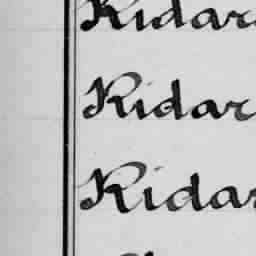 Kidar
Kidar
Kidar